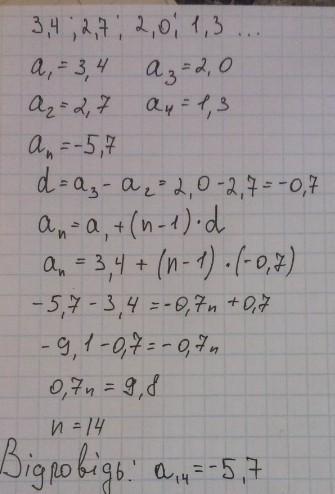 3,4; 2,7; 2,0; 1,3 ...
a₁ = 3,4 a₃ = 2,0
a₂ = 2,7 a₄ = 1,3
aₙ = -5,7
d = a₃ - a₂ = 2,0 - 2,7 = -0,7
aₙ = a₁ + (n-1)·d
aₙ = 3,4 + (n-1)·(-0,7)
-5,7 - 3,4 = -0,7n + 0,7
-9,1 - 0,7 = -0,7n
0,7n = 9,8
n = 14
Відповідь: a₁₄ = -5,7